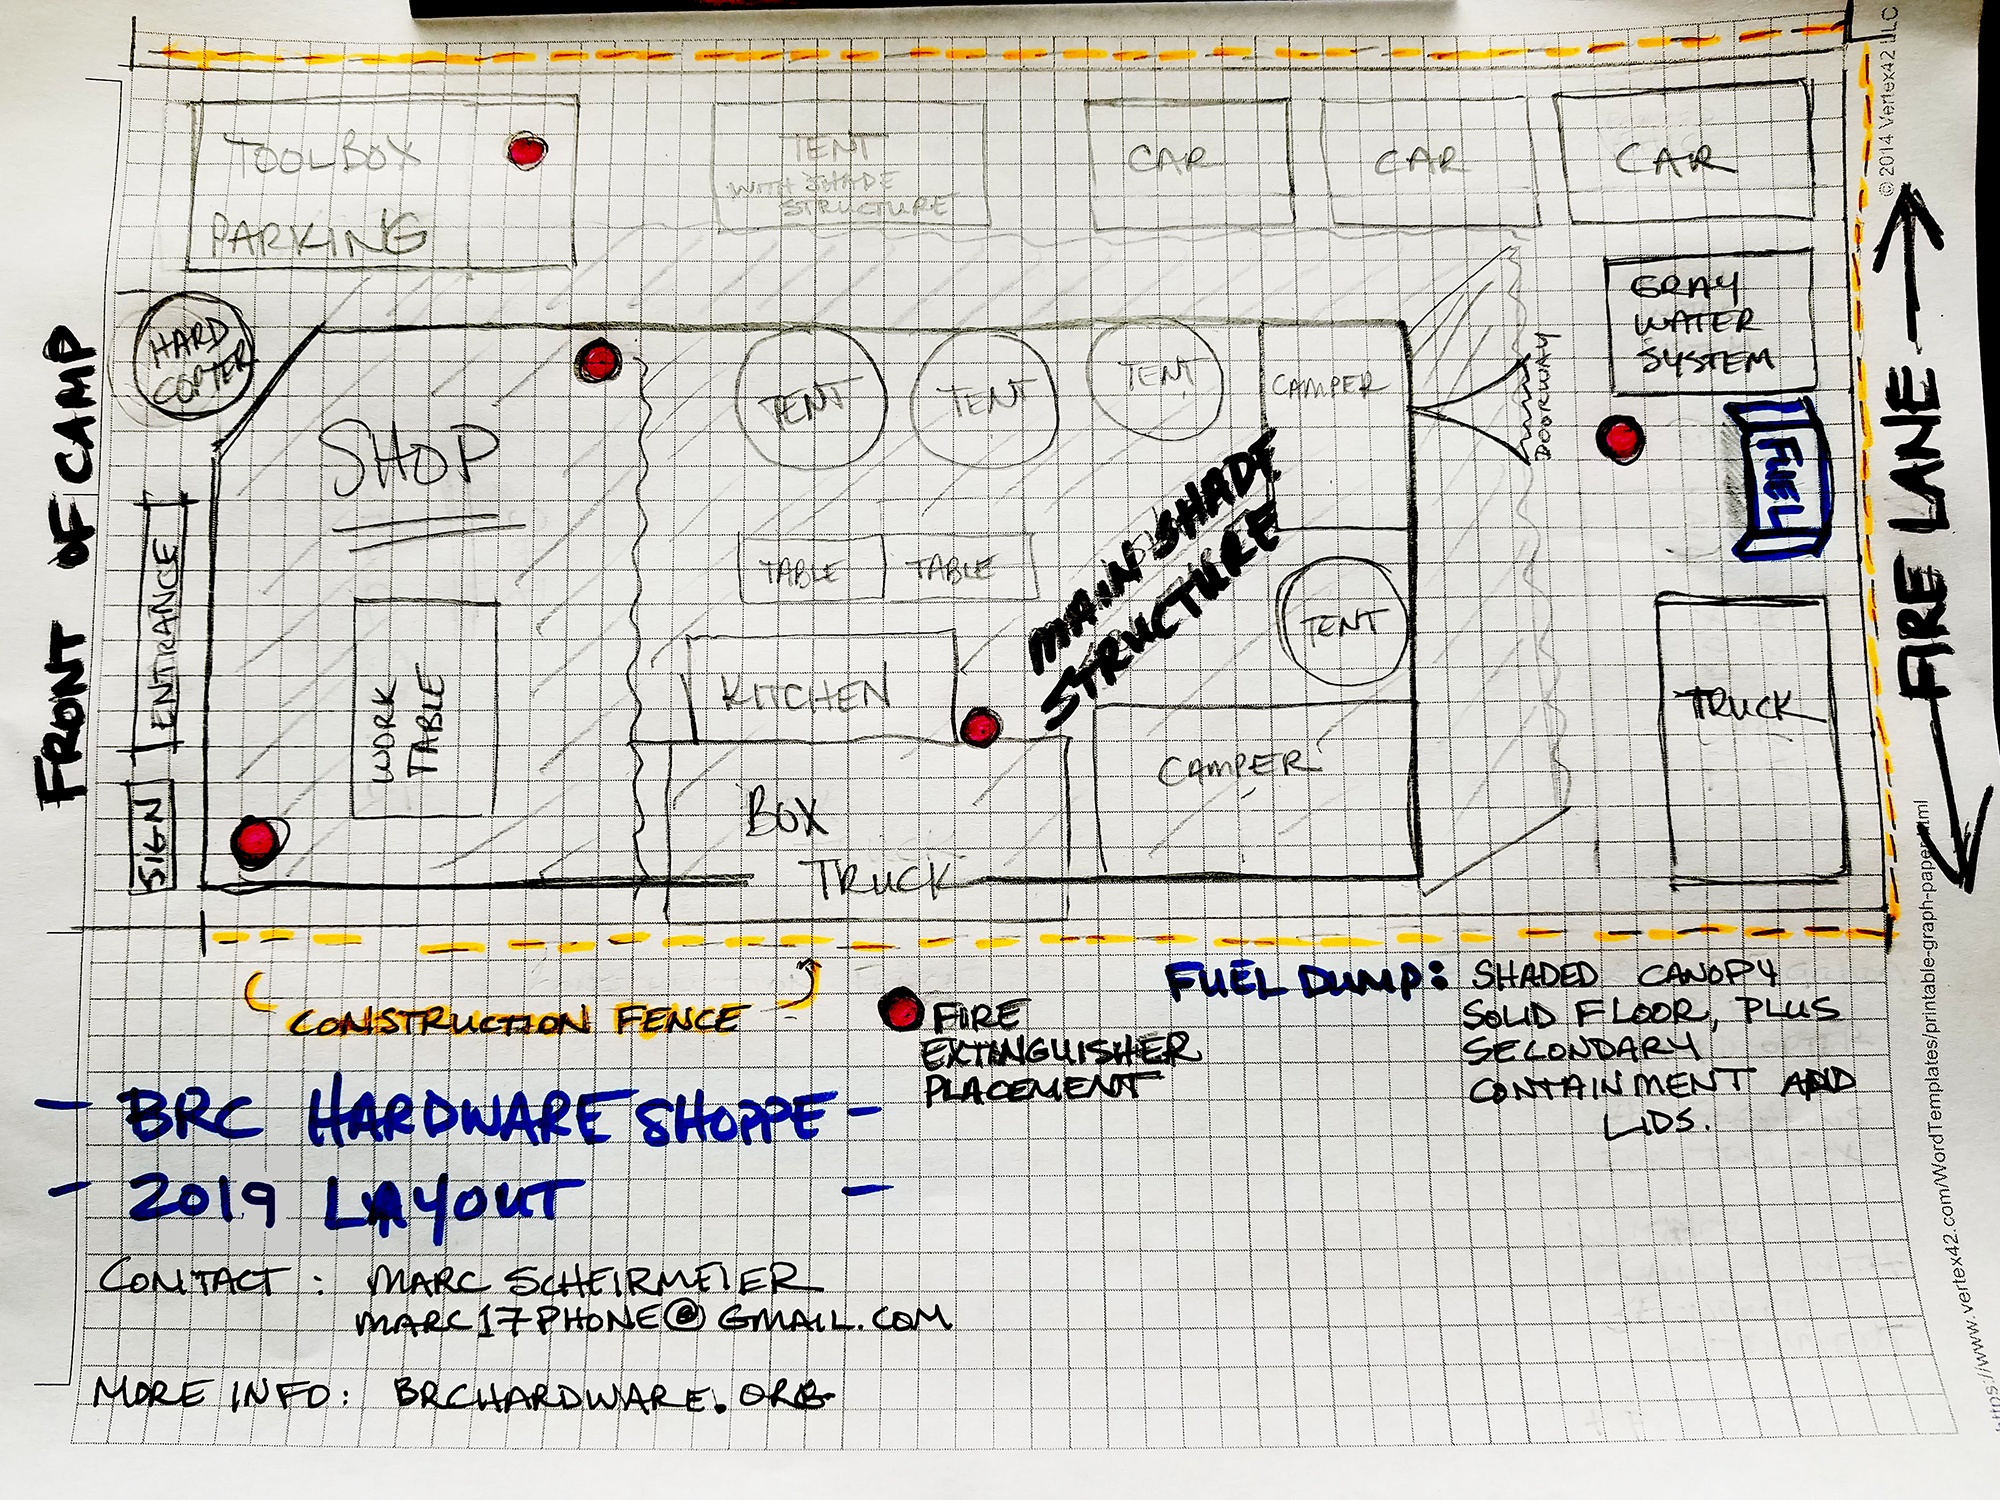 © 2014 Vertex42 LLC
TOOLBOX
PARKING
TENT
WITH SHADE
STRUCTURE
CAR
CAR
CAR
HARD
COPTER
SHOP
TENT
TENT
TENT
CAMPER
DOORWAY
GRAY
WATER
SYSTEM
FUEL
FRONT OF CAMP
ENTRANCE
SIGN
WORK
TABLE
TABLE
TABLE
MAIN SHADE
STRUCTURE
TENT
KITCHEN
BOX
TRUCK
CAMPER
TRUCK
FIRE LANE
CONSTRUCTION FENCE
FIRE
EXTINGUISHER
PLACEMENT
FUEL DUMP: SHADED CANOPY
SOLID FLOOR, PLUS
SECONDARY
CONTAINMENT AND
LIDS.
- BRC HARDWARE SHOPPE -
- 2019 LAYOUT -
CONTACT : MARC SCHEIRMEIER
MARC17PHONE@GMAIL.COM
MORE INFO: BRCHARDWARE.ORG
https://www.vertex42.com/WordTemplates/printable-graph-paper.html